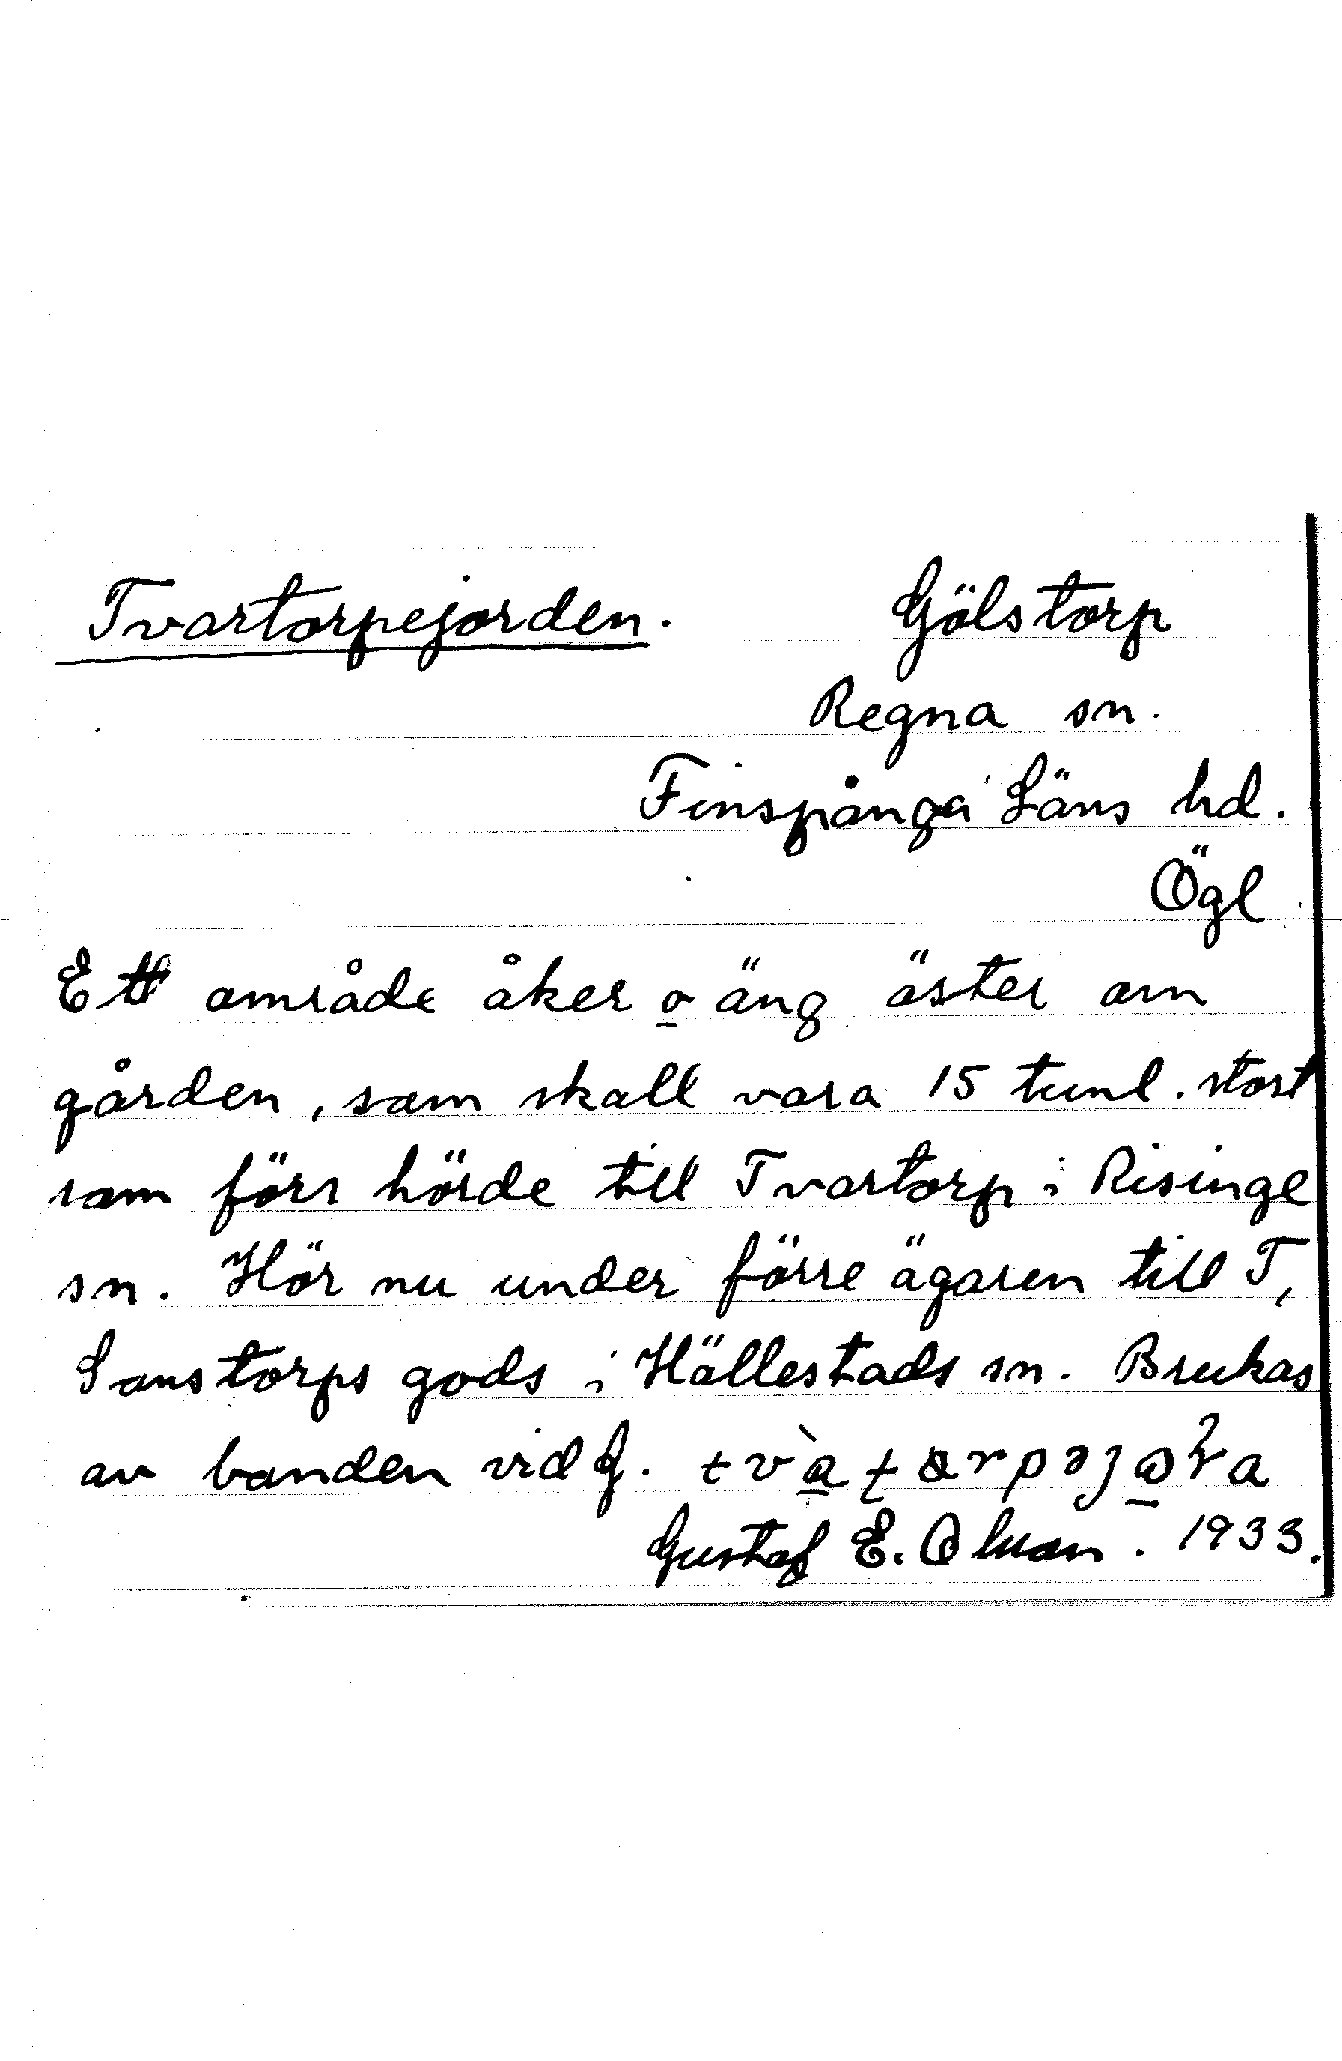 Tvartorpejorden. Gölstorp
Regna sn.
Finspånga Läns hd.
Ögl
Ett område åker o äng öster om
gården, som skall vara 15 tunl. stort
som förr hörde till Tvartorp i Risinge
sn. Hör nu under förre ägaren till T,
Sonstorps gods i Hällestads sn. Brukas
av bonden vid G.
Gustaf E. Olsson. 1933.